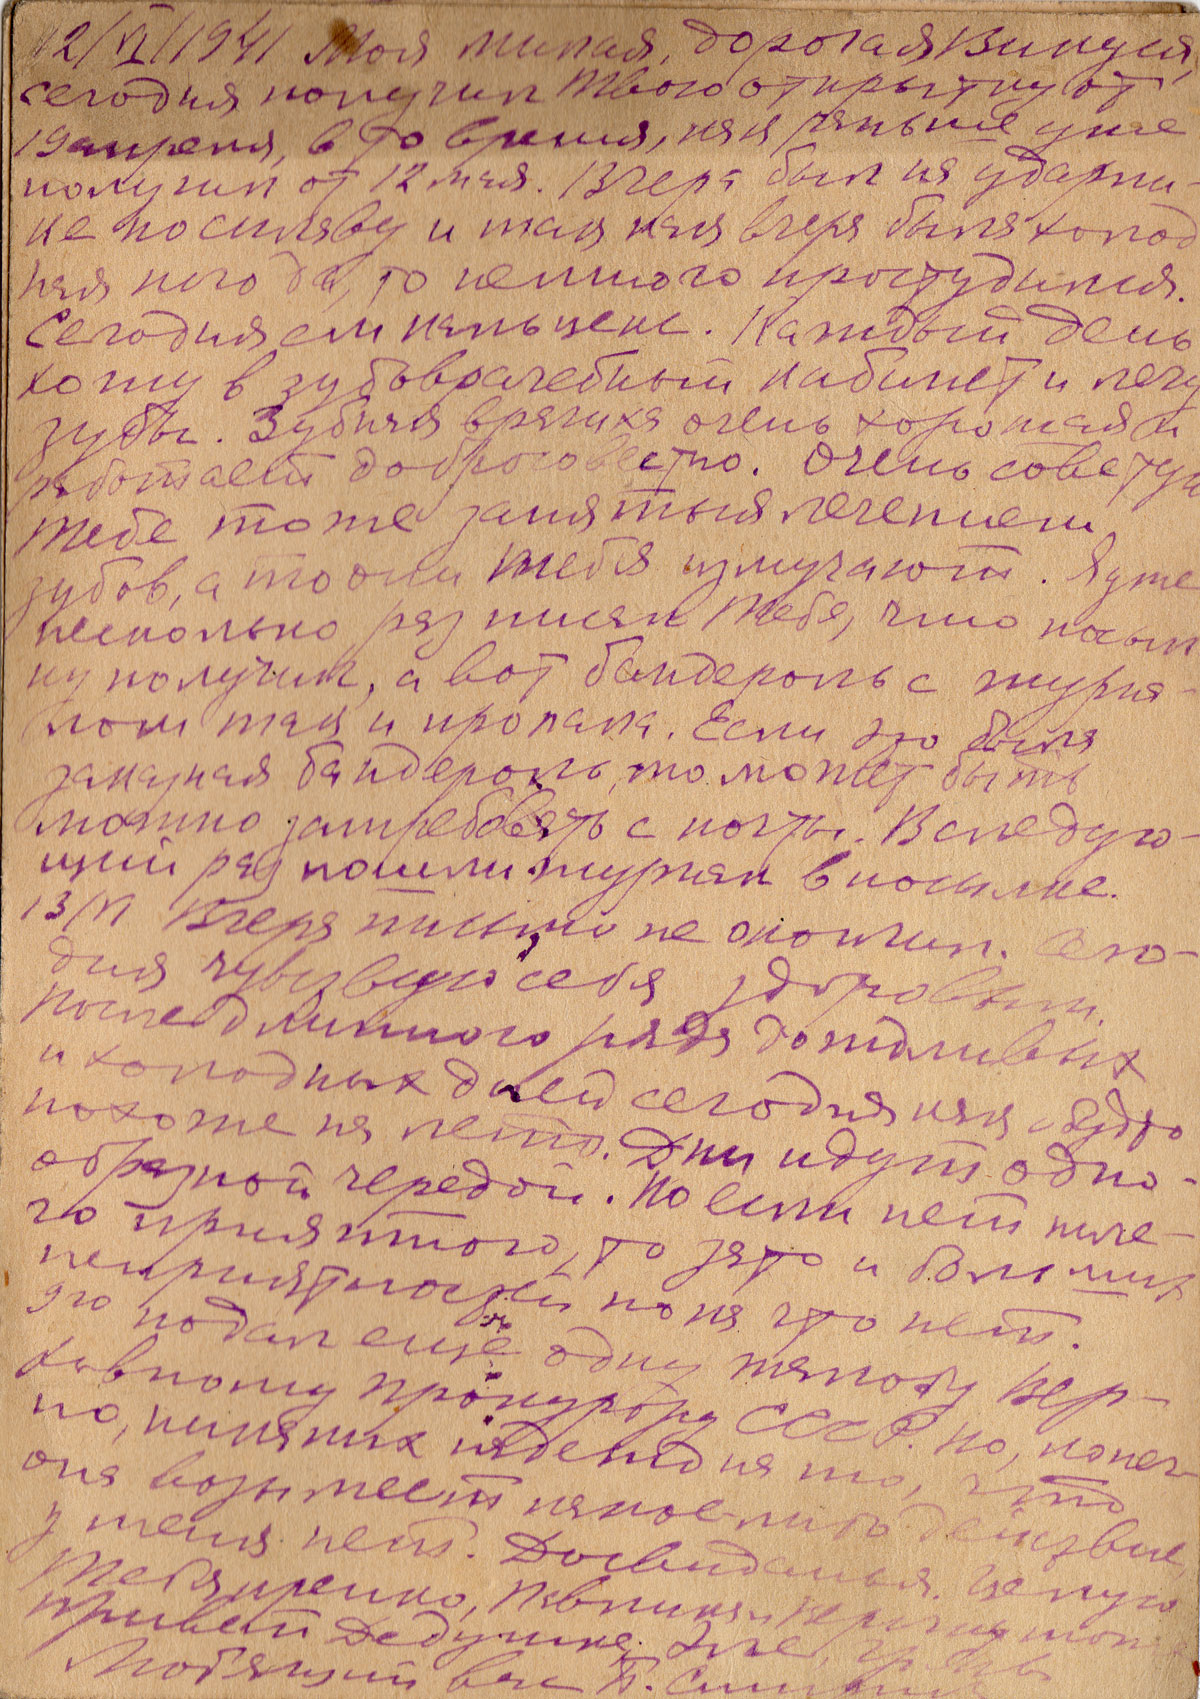 12/VI/1941 Моя милая, дорогая Винуся,
сегодня получил твою открытку от
19 апреля, в то время, как раньше уже
получил от 12 мая. Вчера был на ударни-
ке по сплаву и так как вчера была холод
ная погода, то немного простудился.
Сегодня ем кальцекс. Каждый день
хожу в зубоврачебный кабинет и лечу
зубы. Зубная врачиха очень хорошая и
работает добросовестно. Очень советую
тебе тоже заняться лечением
зубов, а то они тебя измучают. Я уже
несколько раз писал тебе, что посыл
ку получил, а вот бандероль с журна-
лом так и пропала. Если это была
заказная бандероль, то может быть
можно затребовать с почты. В следую-
щий раз пошли журнал в посылке.
13/VI Вчера письмо не окончил. Сего-
дня чувствую себя здоровым.
После длинного ряда дождливых
и холодных дней сегодня как будто
похоже на лето. Дни идут одно-
образной чередой. Но если нет ниче-
го приятного, то зато и больших
неприятностей пока что нет.
Я подал еще одну жалобу Вер-
ховному прокурору СССР. Но, конеч-
но, никаких надежд на то, что
она возымеет какое-либо действие,
у меня нет. Досвиданья. Целую
тебя крепко, Павлика и
привет Дедушке,
Любящий вас П.